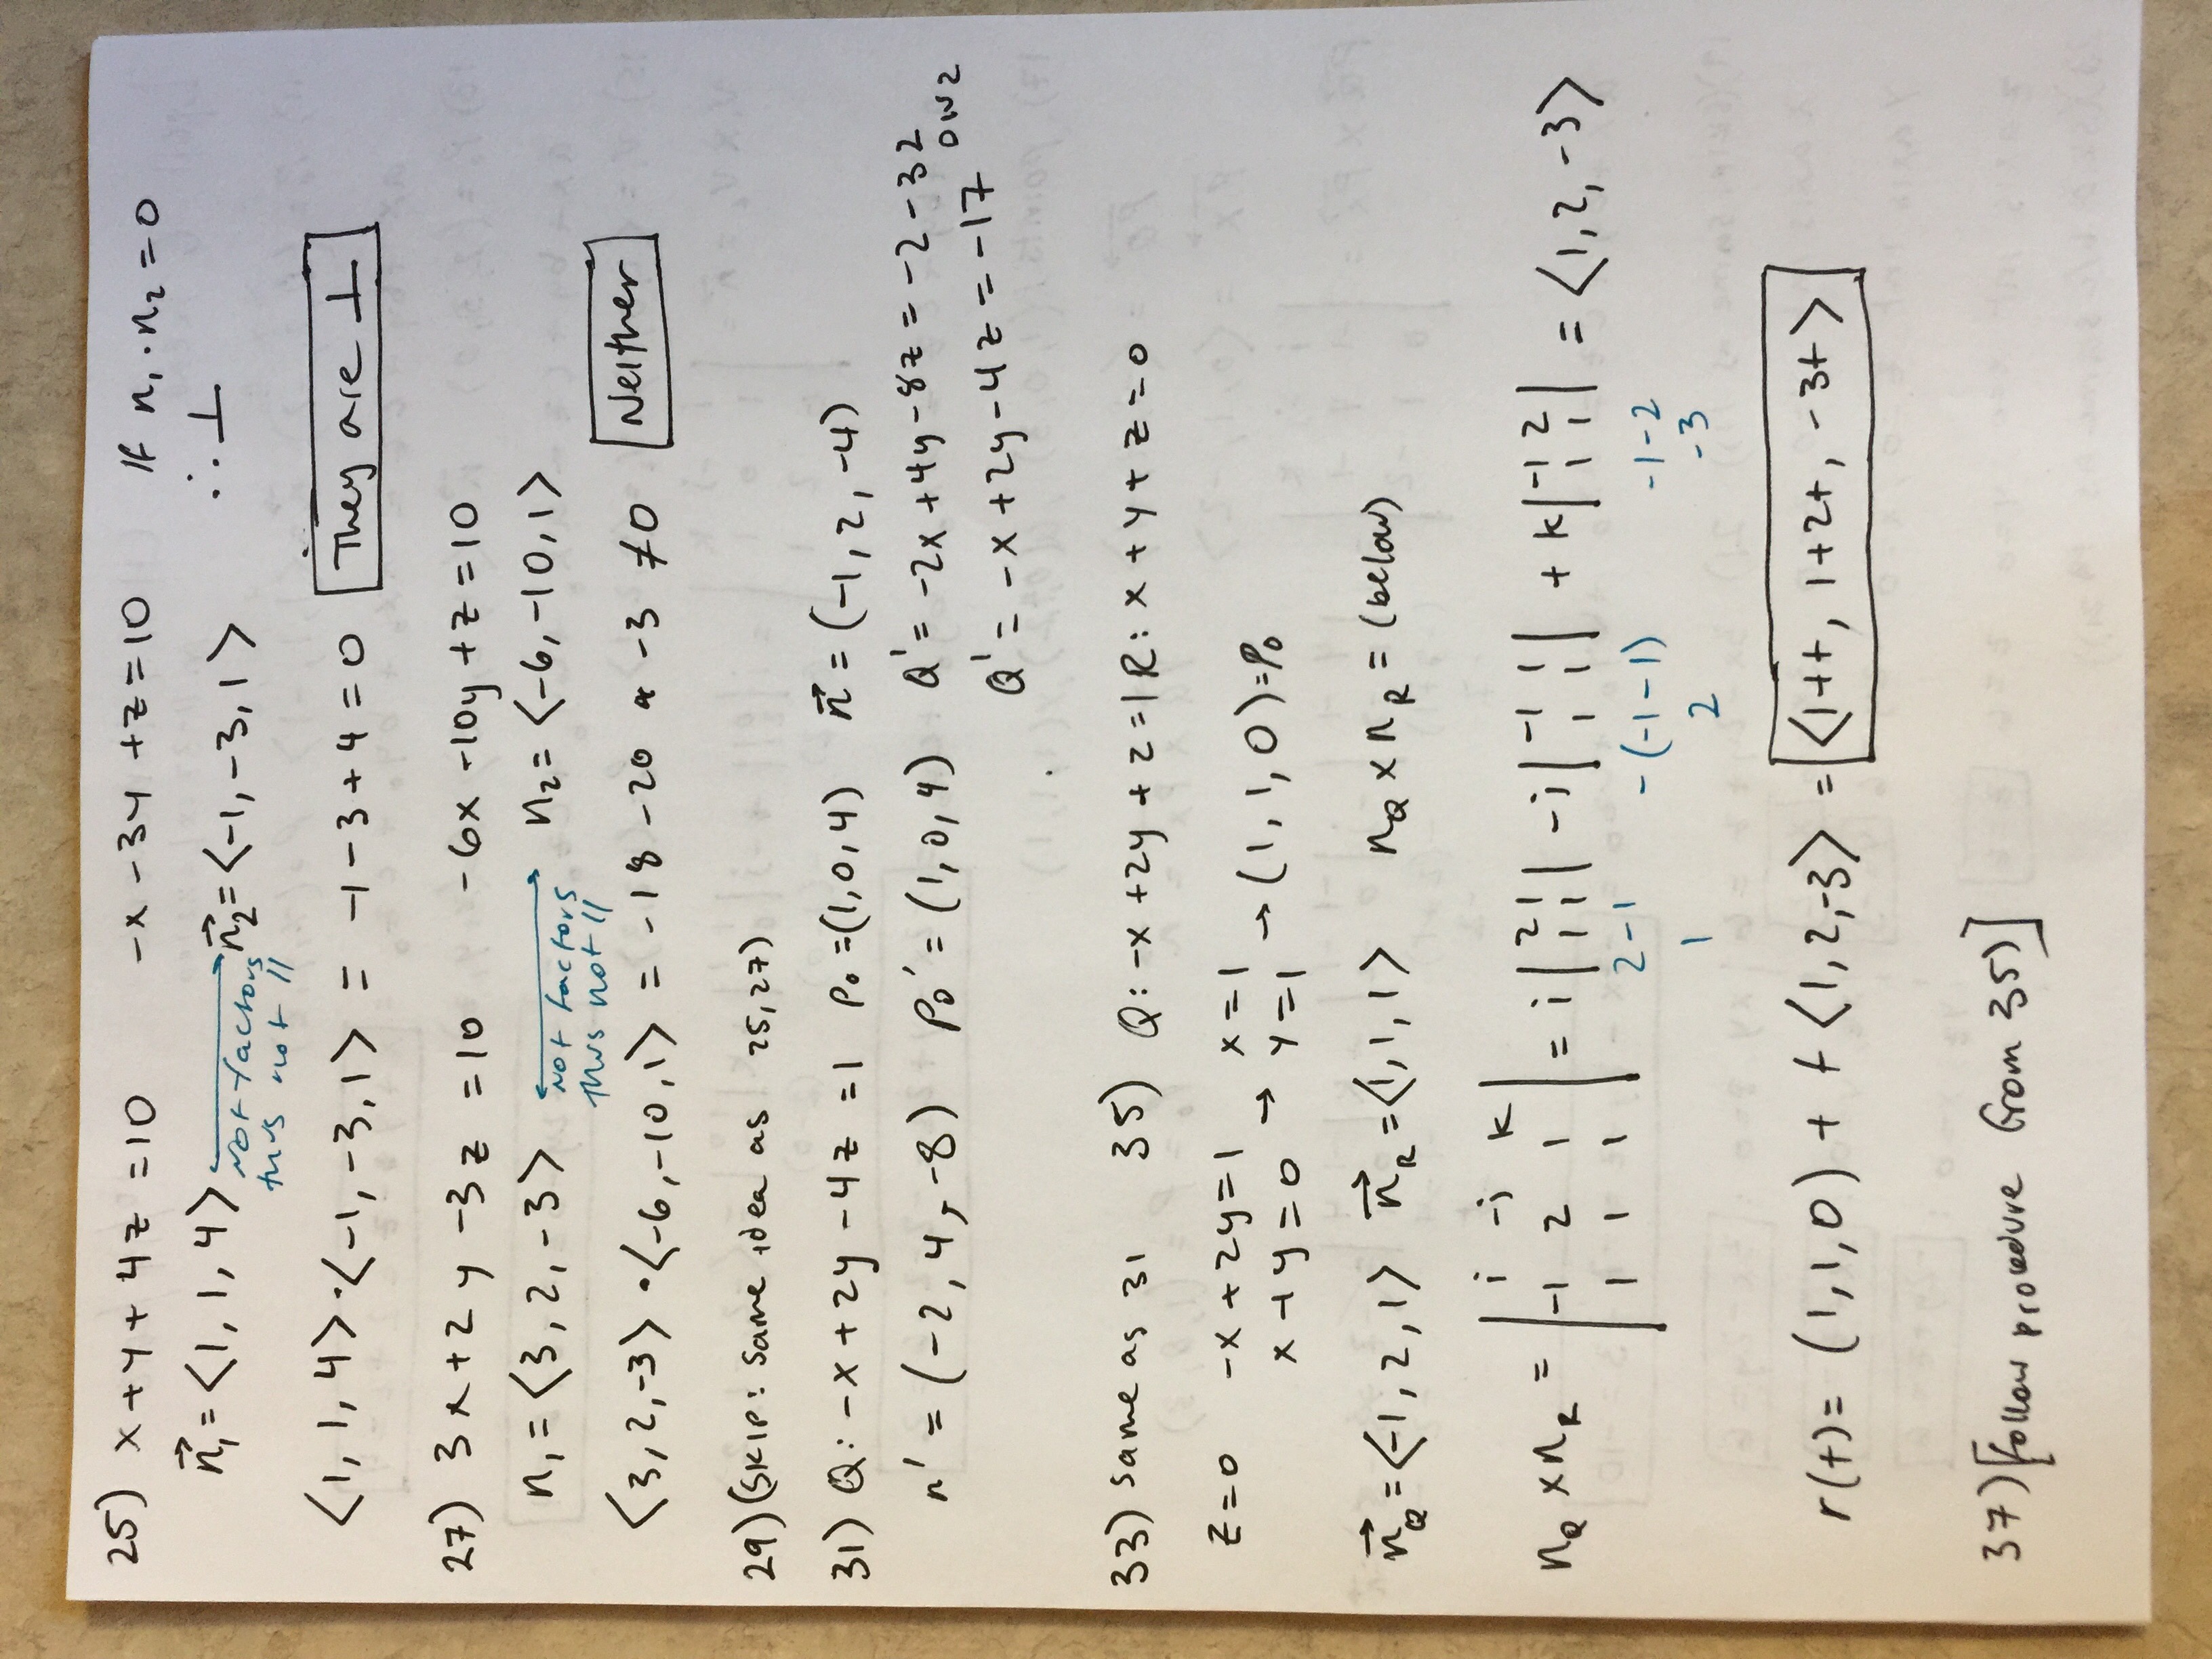 25) x + y + 4z = 10 -x - 3y + z = 10 If n₁ · n₂ = 0
n⃗₁ = ⟨1, 1, 4⟩ Not factors thus not // n⃗₂ = ⟨-1, -3, 1⟩ ∴ ⊥
⟨1, 1, 4⟩ · ⟨-1, -3, 1⟩ = -1 - 3 + 4 = 0 They are ⊥
27) 3x + 2y - 3z = 10 -6x - 10y + z = 10
n₁ = ⟨3, 2, -3⟩ Not factors thus not // n₂ = ⟨-6, -10, 1⟩
⟨3, 2, -3⟩ · ⟨-6, -10, 1⟩ = -18 - 20 -3 ≠ 0 Neither
29) (SKIP: same idea as 25, 27)
31) Q: -x + 2y - 4z = 1 P₀ = (1, 0, 4) n⃗ = (-1, 2, -4)
n' = (-2, 4, -8) P₀' = (1, 0, 4) Q' = -2x + 4y - 8z = -2 - 32 DIV 2
Q' = -x + 2y - 4z = -17
33) same as 31 35) Q: -x + 2y + z = 1 R: x + y + z = 0
z = 0 -x + 2y = 1 → x = 1 → (1, 1, 0) = P₀
x + y = 0 y = 1
n⃗_Q = ⟨-1, 2, 1⟩ n⃗_R = ⟨1, 1, 1⟩ n_Q × n_R = (below)
i -j k
n_Q × n_R = | -1 2 1 | = i | 2 1 | - j | -1 1 | + k | -1 2 | = ⟨1, 2, -3⟩
1 1 1 1 1 1 1 1 1
2 - 1 -(-1 - 1) -1 - 2
1 2 -3
r(t) = (1, 1, 0) + t ⟨1, 2, -3⟩ = ⟨1+t, 1+2t, -3t⟩
37) [follow procedure from 35)]